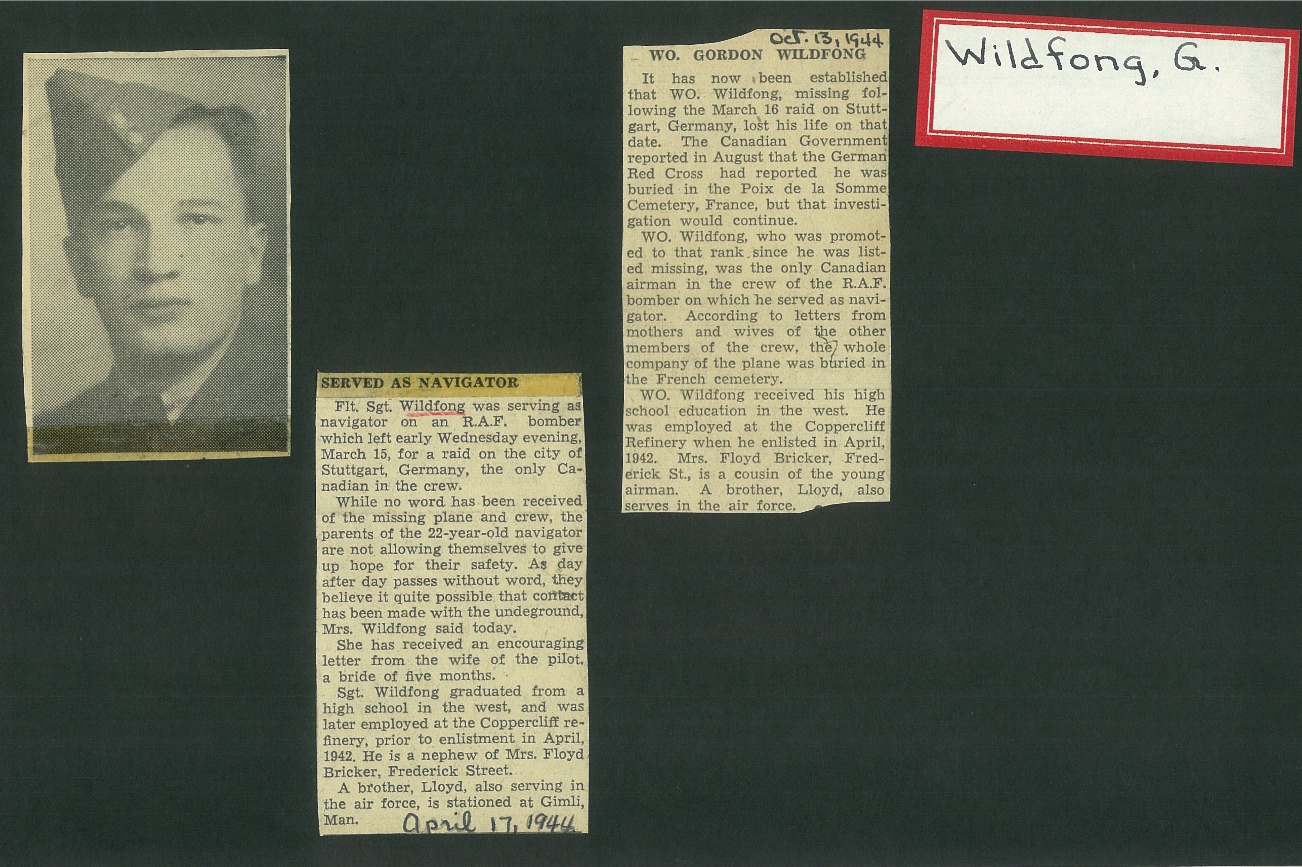 Wildfong, G.
SERVED AS NAVIGATOR
Flt. Sgt. Wildfong was serving as
navigator on an R.A.F. bomber
which left early Wednesday evening,
March 15, for a raid on the city of
Stuttgart, Germany, the only Ca-
nadian in the crew.
While no word has been received
of the missing plane and crew, the
parents of the 22-year-old navigator
are not allowing themselves to give
up hope for their safety. As day
after day passes without word, they
believe it quite possible that contact
has been made with the undeground,
Mrs. Wildfong said today.
She has received an encouraging
letter from the wife of the pilot,
a bride of five months.
Sgt. Wildfong graduated from a
high school in the west, and was
later employed at the Coppercliff re-
finery, prior to enlistment in April,
1942. He is a nephew of Mrs. Floyd
Bricker, Frederick Street.
A brother, Lloyd, also serving in
the air force, is stationed at Gimli,
Man.
April 17, 1944
Oct. 13, 1944
WO. GORDON WILDFONG
It has now been established
that WO. Wildfong, missing fol-
lowing the March 16 raid on Stutt-
gart, Germany, lost his life on that
date. The Canadian Government
reported in August that the German
Red Cross had reported he was
buried in the Poix de la Somme
Cemetery, France, but that investi-
gation would continue.
WO. Wildfong, who was promot-
ed to that rank since he was list-
ed missing, was the only Canadian
airman in the crew of the R.A.F.
bomber on which he served as navi-
gator. According to letters from
mothers and wives of the other
members of the crew, the whole
company of the plane was buried in
the French cemetery.
WO. Wildfong received his high
school education in the west. He
was employed at the Coppercliff
Refinery when he enlisted in April,
1942. Mrs. Floyd Bricker, Fred-
erick St., is a cousin of the young
airman. A brother, Lloyd, also
serves in the air force.